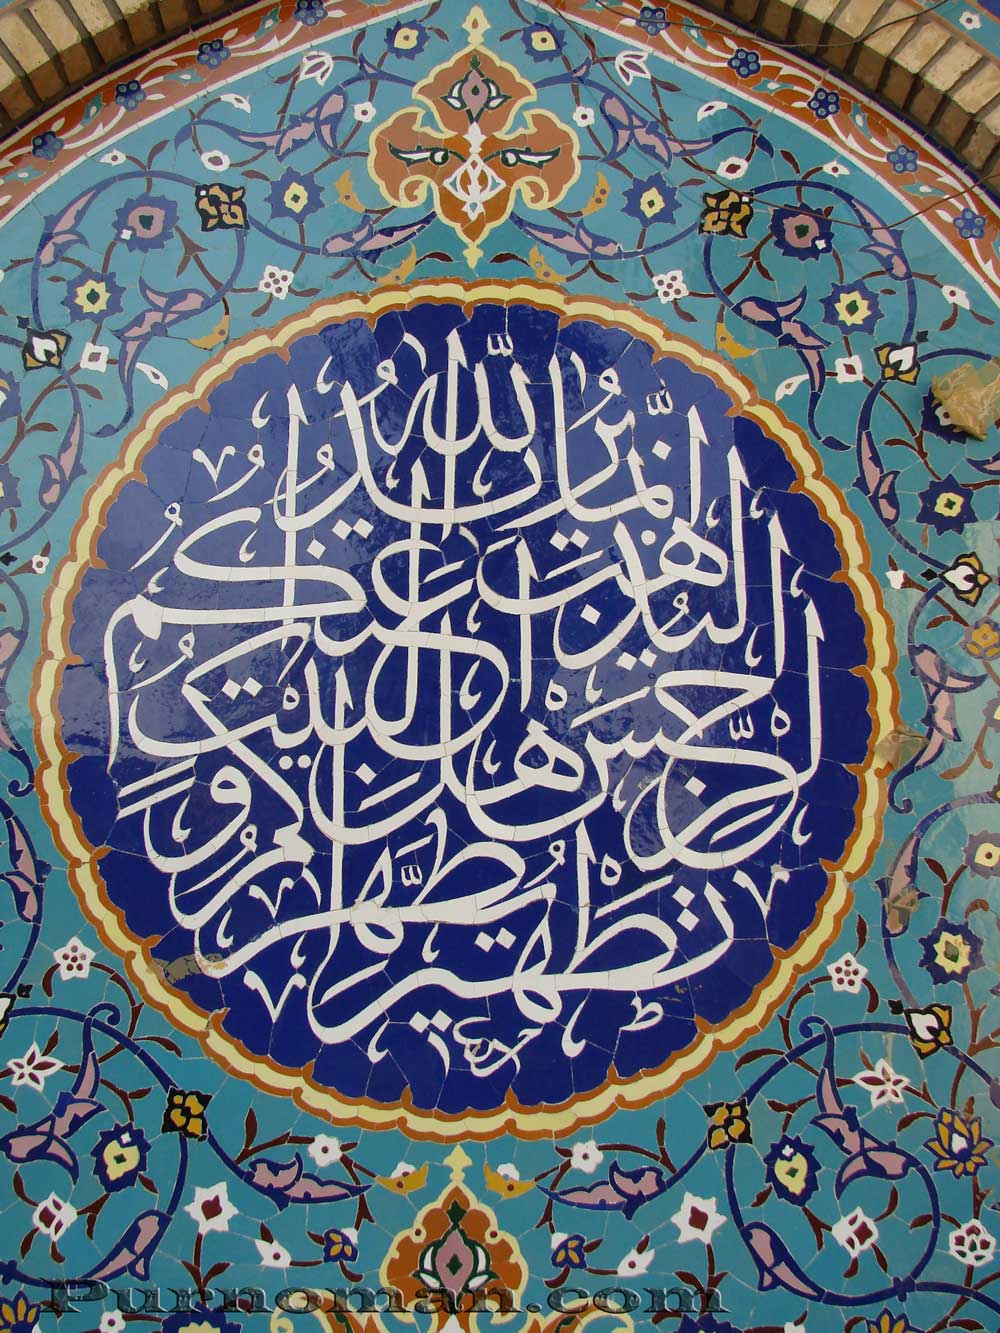 إنما يريد الله
ليذهب عنكم
الرجس أهل البيت و
يطهركم
تطهيرا
Purnoman.com